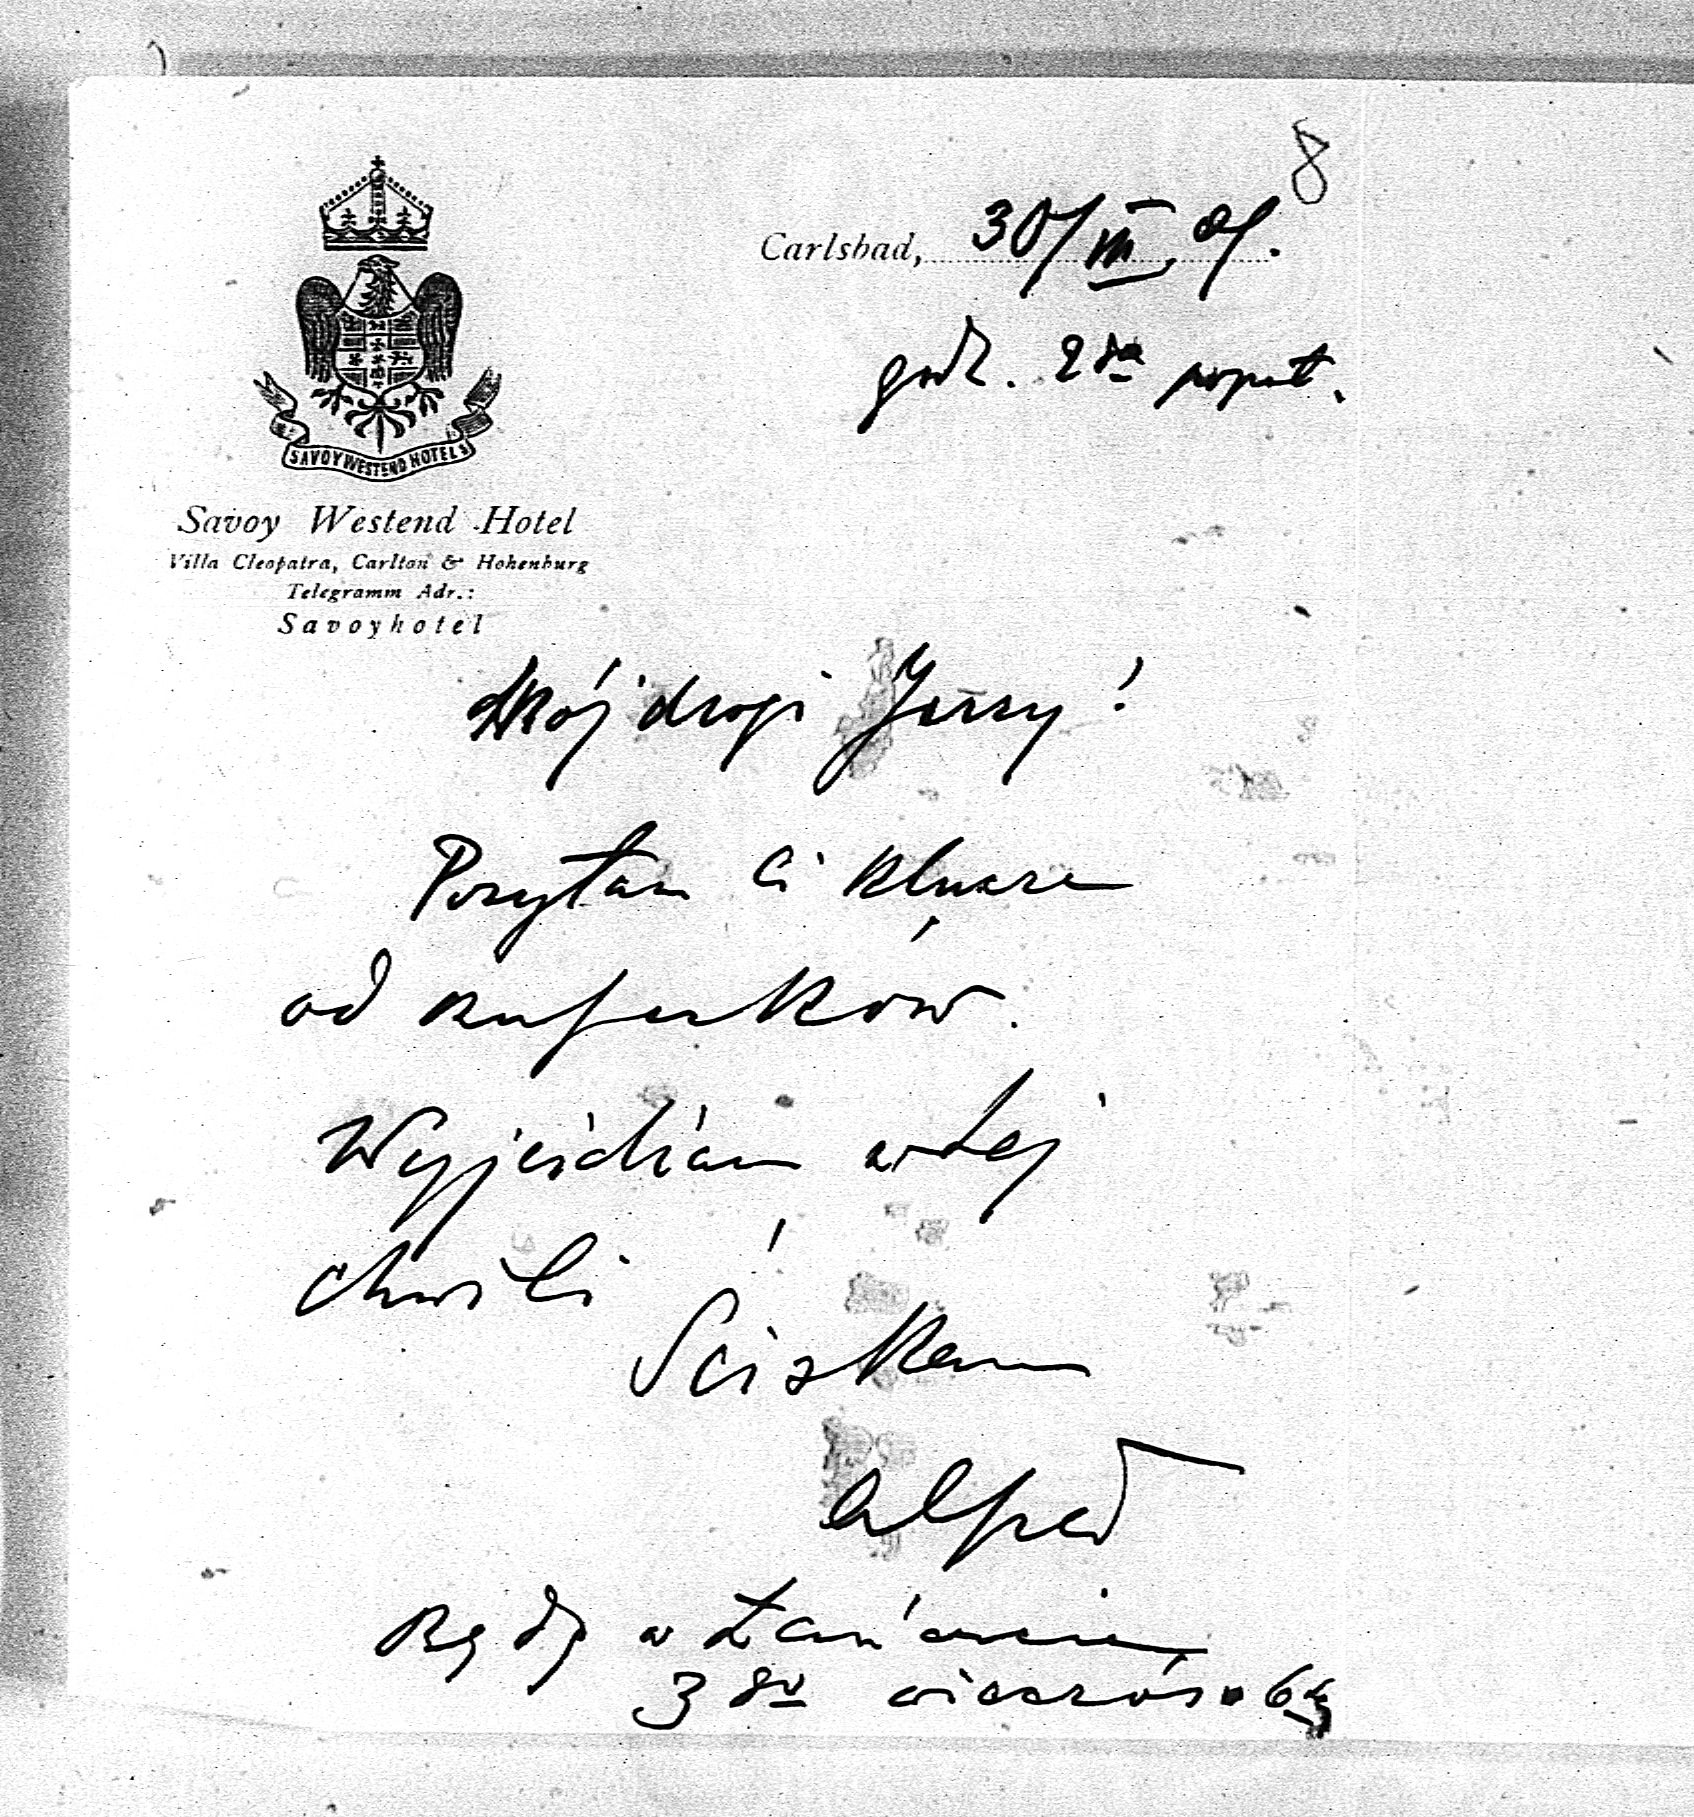 8
Carlsbad, 30/VIII 01.
godz. 2ga popoł.
SAVOY WESTEND HOTELS
Savoy Westend Hotel
Villa Cleopatra, Carlton & Hohenburg
Telegramm Adr.:
Savoyhotel
Mój drogi Jerzy!
Posyłam Ci klucze
od kuferków.
Wyjeżdżam w tej
chwili
Ściskam
Alfred
Będę w Łańcucie
3go wieczór o 6ej